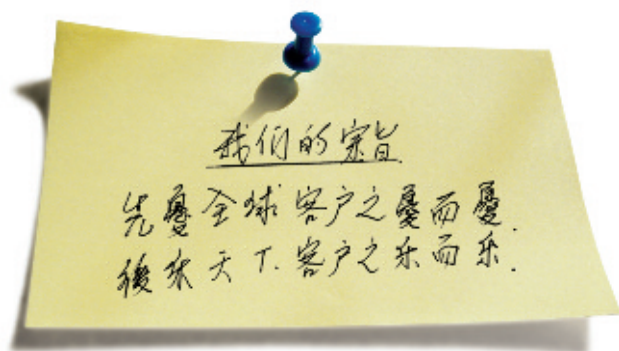 我们的宗旨
先憂全球客户之憂而憂.
後乐天下.客户之乐而乐.